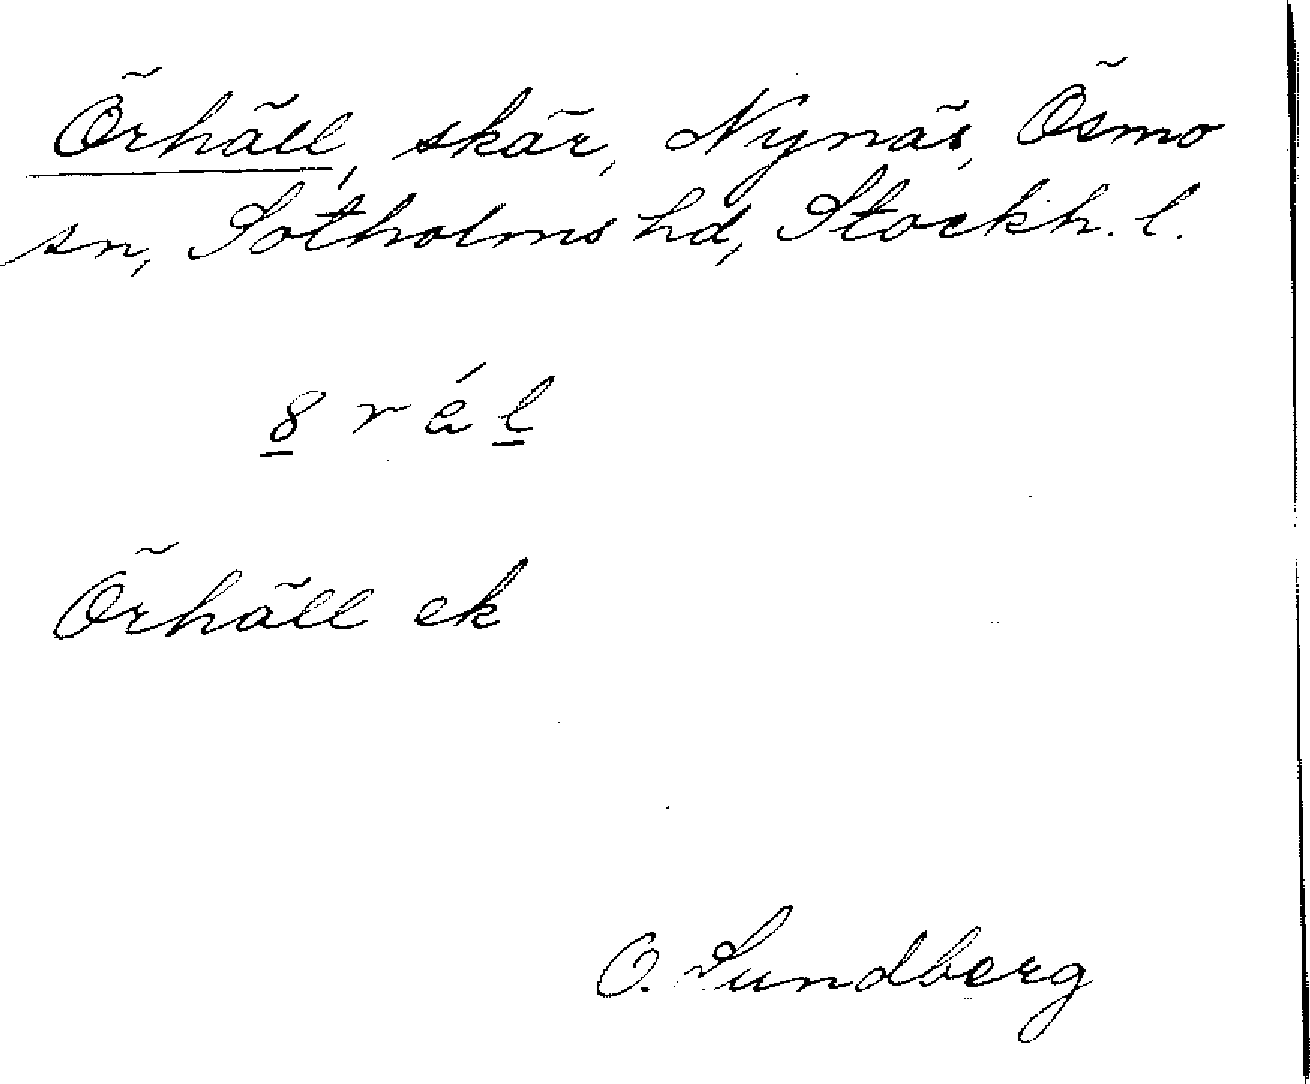 Örhäll, skär, Nynäs, Ösmo
sn, Sotholms hd, Stockh. l.
8 r á l
Örhäll ek
O. Lundberg